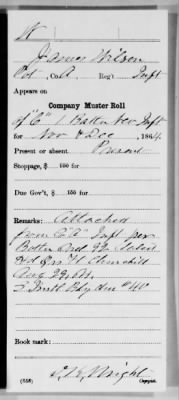 W
James Wilson
Pvt Co. A. Reg't Inft
Appears on
Company Muster Roll
of "C" 1 Battn Inft
for Nov & Dec, 1864.
Present or absent Present
Stoppage, $ 100 for
Due Gov't, $ 100 for
Remarks: Attached
from Co "A" Inft per
Battn Ord
Hd Qrs Ft Churchill
Aug 29, 64.
#40
Book mark:
(358)
Wright
Copyist.